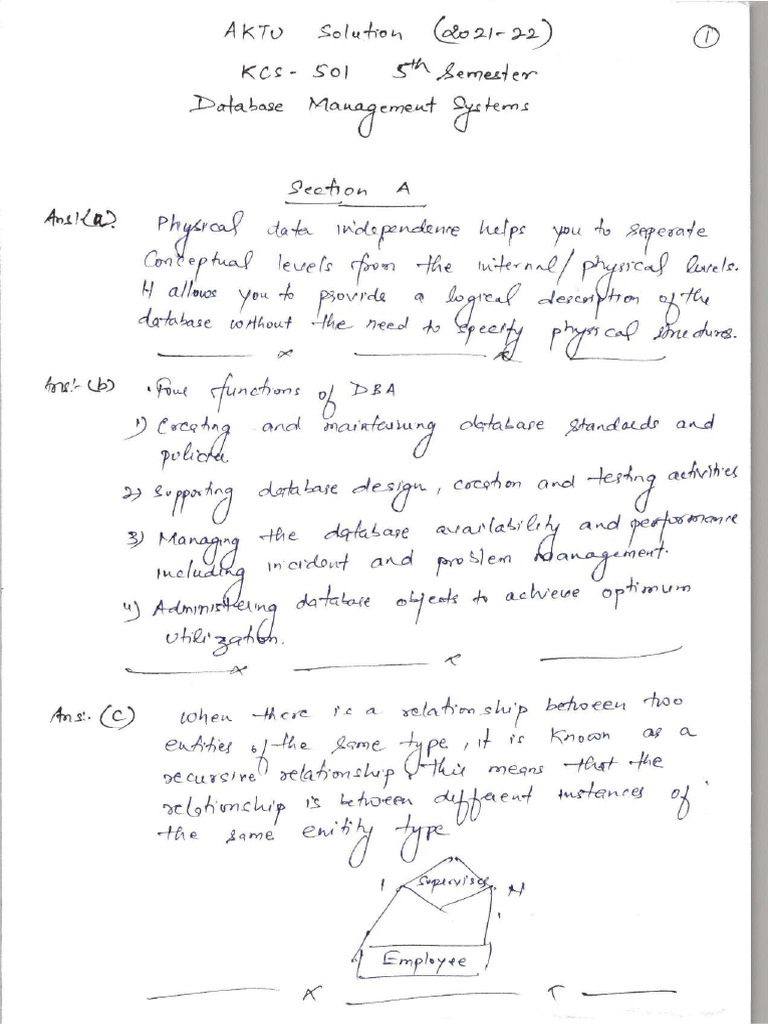 AKTU Solution (2021-22)
1
KCS-501 5th Semester
Database Management Systems
Section A
Ans:(a)
Physical data independence helps you to seperate
Conceptual levels from the internal/physical levels.
It allows you to provide a logical description of the
database without the need to specify physical structures.
Ans:-(b)
• Four functions of DBA
1) Creating and maintaining database standards and
policies
2) Supporting database design, creation and testing activities
3) Managing the database availability and performance
including incident and problem management.
4) Administering database objects to achieve optimum
utilization.
Ans:.(C)
When there is a relationship between two
entities of the same type, it is known as a
recursive relationship. this means that the
relationship is between different instances of
the same enitity type
1 Supervises N
Employee